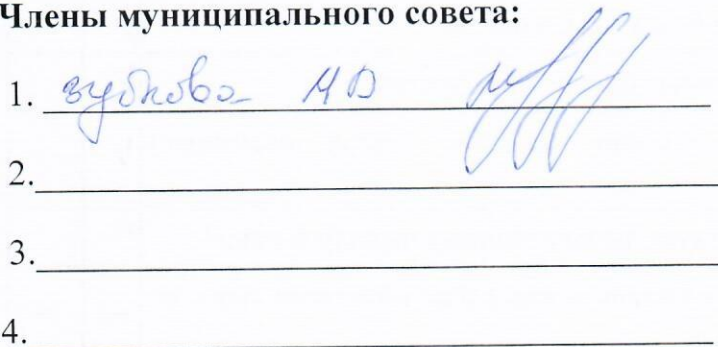 Члены муниципального совета:
1. Зубкова НД
2.
3.
4.